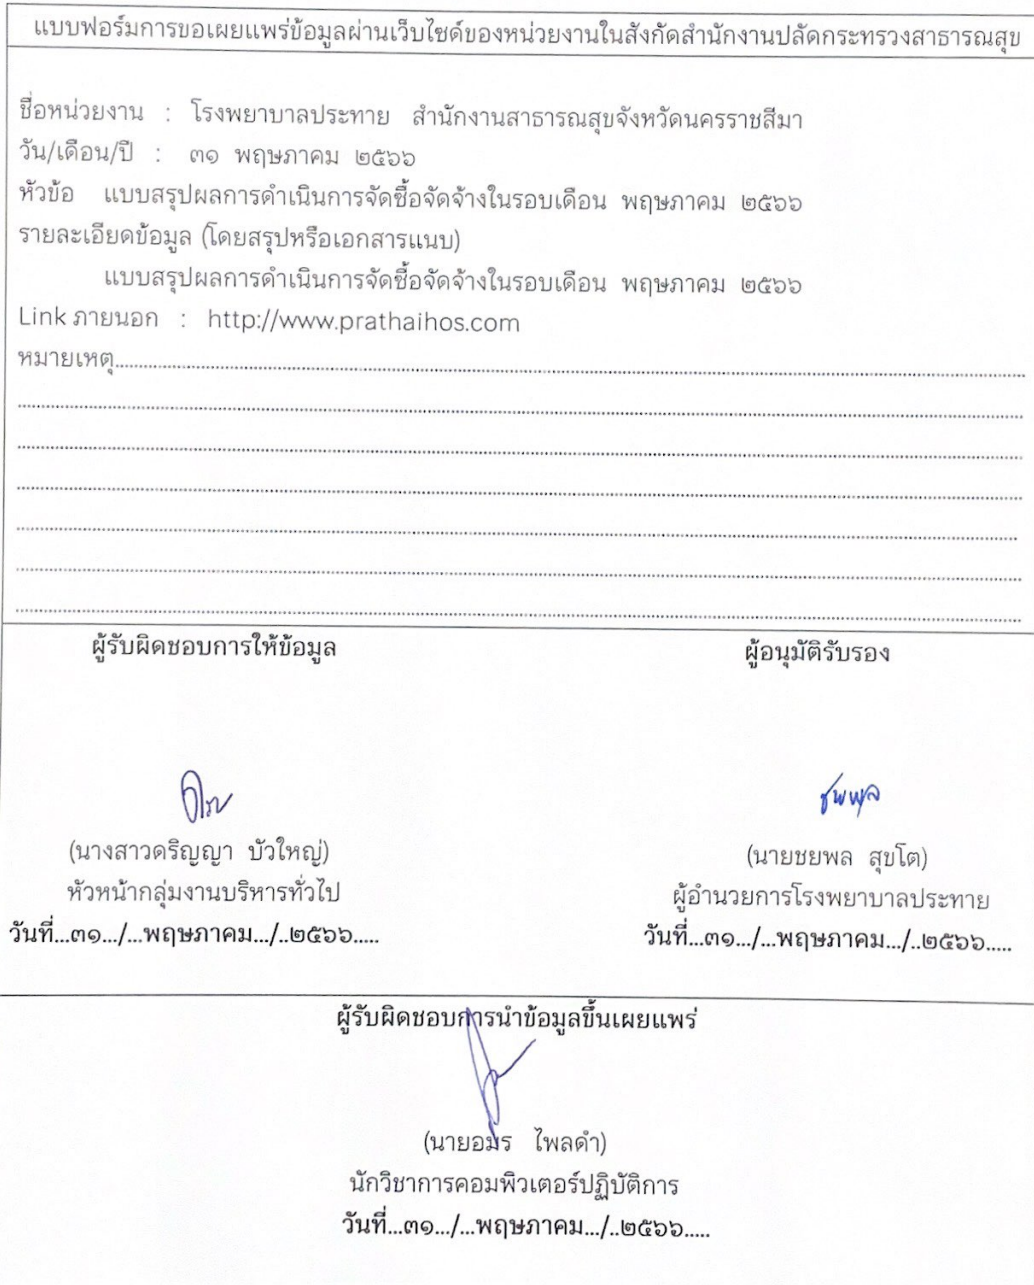 แบบฟอร์มการขอเผยแพร่ข้อมูลผ่านเว็บไซด์ของหน่วยงานในสังกัดสำนักงานปลัดกระทรวงสาธารณสุข
ชื่อหน่วยงาน : โรงพยาบาลประทาย สำนักงานสาธารณสุขจังหวัดนครราชสีมา
วัน/เดือน/ปี : ๓๑ พฤษภาคม ๒๕๖๖
หัวข้อ แบบสรุปผลการดำเนินการจัดซื้อจัดจ้างในรอบเดือน พฤษภาคม ๒๕๖๖
รายละเอียดข้อมูล (โดยสรุปหรือเอกสารแนบ)
แบบสรุปผลการดำเนินการจัดซื้อจัดจ้างในรอบเดือน พฤษภาคม ๒๕๖๖
Link ภายนอก : http://www.prathaihos.com
หมายเหตุ
ผู้รับผิดชอบการให้ข้อมูล
(นางสาวดริญญา บัวใหญ่)
หัวหน้ากลุ่มงานบริหารทั่วไป
วันที่...๓๑.../...พฤษภาคม.../..๒๕๖๖.....
ผู้อนุมัติรับรอง
(นายชยพล สุขโต)
ผู้อำนวยการโรงพยาบาลประทาย
วันที่...๓๑.../...พฤษภาคม.../..๒๕๖๖.....
ผู้รับผิดชอบการนำข้อมูลขึ้นเผยแพร่
(นายอมร ไพลดำ)
นักวิชาการคอมพิวเตอร์ปฏิบัติการ
วันที่...๓๑.../...พฤษภาคม.../..๒๕๖๖.....